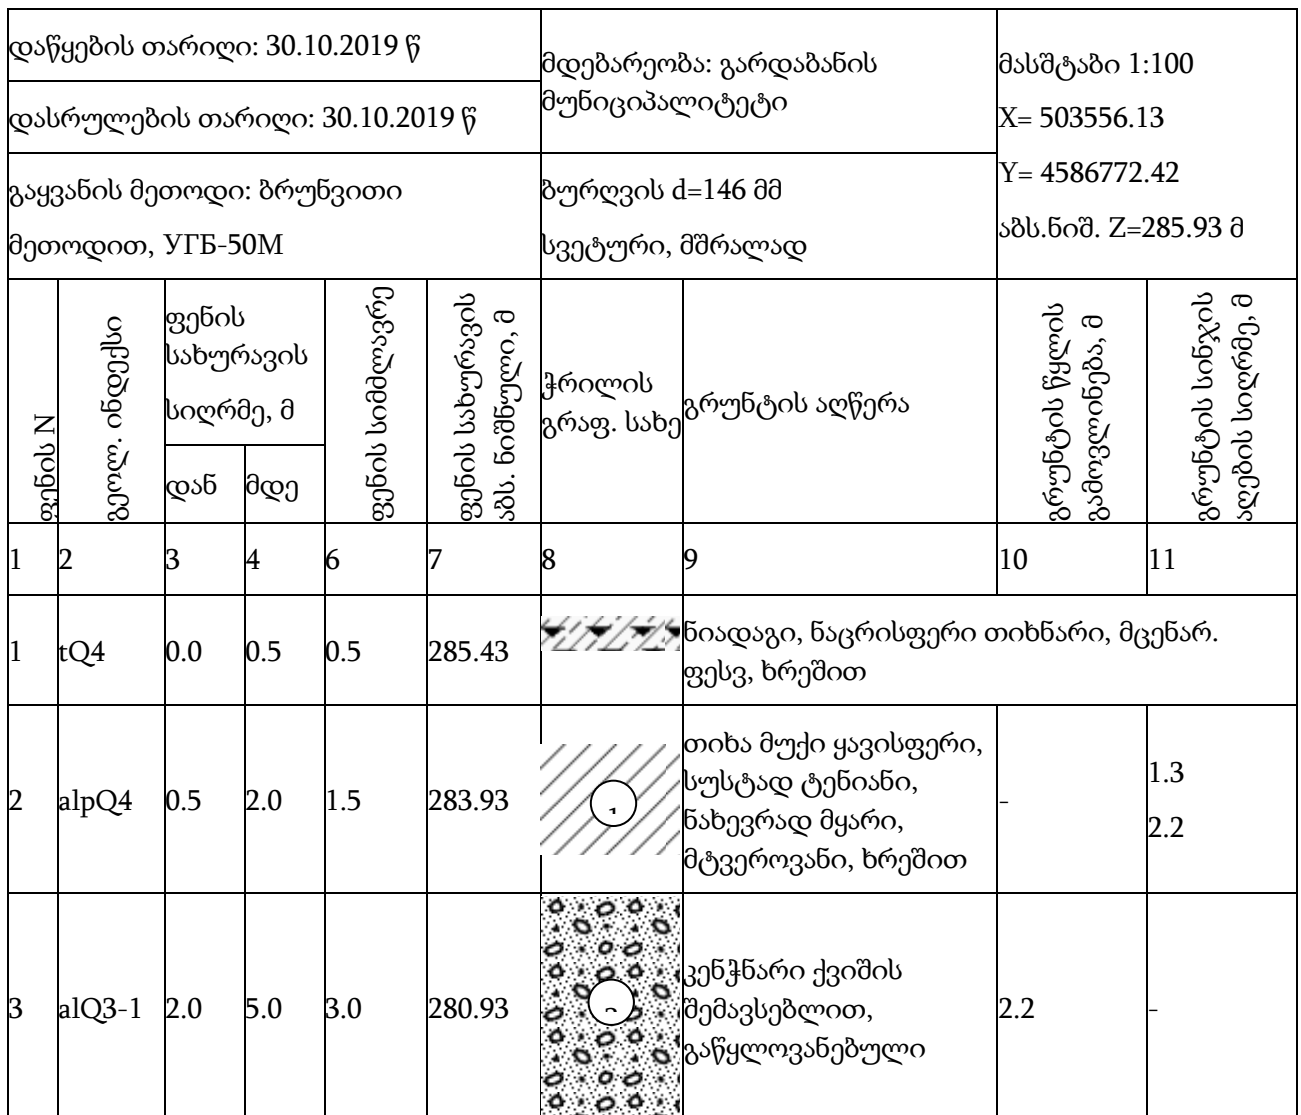 დაწყების თარიღი: 30.10.2019 წ
დასრულების თარიღი: 30.10.2019 წ
მდებარეობა: გარდაბანის
მუნიციპალიტეტი
მასშტაბი 1:100
X= 503556.13
Y= 4586772.42
აბს.ნიშ. Z=285.93 მ
გაყვანის მეთოდი: ბრუნვითი
მეთოდით, УГБ-50М
ბურღვის d=146 მმ
სვეტური, მშრალად
ფენის N
გეოლ. ინდექსი
ფენის
სახურავის
სიღრმე, მ
დან
მდე
ფენის სიმძლავრე
ფენის სახურავის
აბს. ნიშნული, მ
ჭრილის
გრაფ. სახე
გრუნტის აღწერა
გრუნტის წყლის
გამოვლინება, მ
გრუნტის სინჯის
აღების სიღრმე, მ
1 2 3 4 6 7 8 9 10 11
1 tQ4 0.0 0.5 0.5 285.43
ნიადაგი, ნაცრისფერი თიხნარი, მცენარ.
ფესვ, ხრეშით
2 alpQ4 0.5 2.0 1.5 283.93
თიხა მუქი ყავისფერი,
სუსტად ტენიანი,
ნახევრად მყარი,
მტვეროვანი, ხრეშით
-
1.3
2.2
3 alQ3-1 2.0 5.0 3.0 280.93
კენჭნარი ქვიშის
შემავსებლით,
გაწყლოვანებული
2.2
-